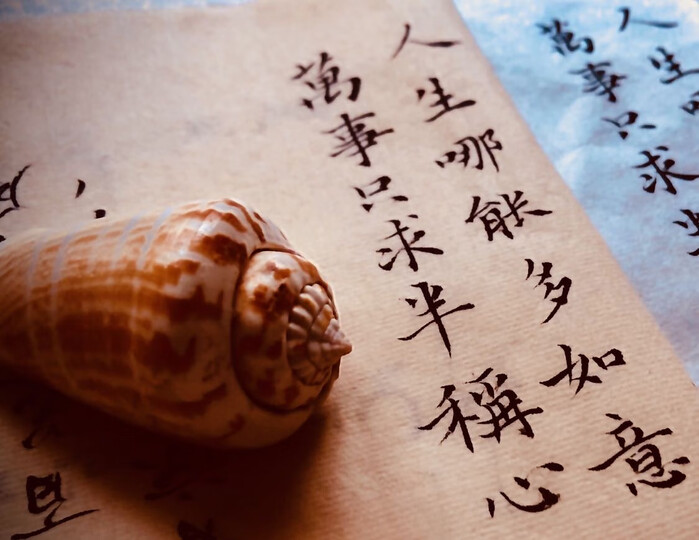 人生哪能多如意
萬事只求半稱心
人生
萬事只求